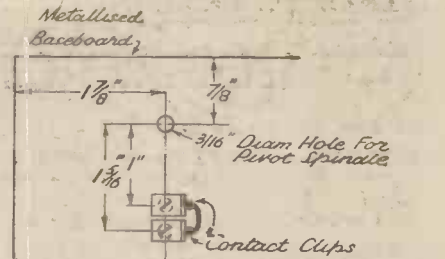 Metallised
Baseboard
1 7/8"
7/8"
3/16" Diam Hole For
Pivot Spindle
1 5/16"
1"
Contact Clips